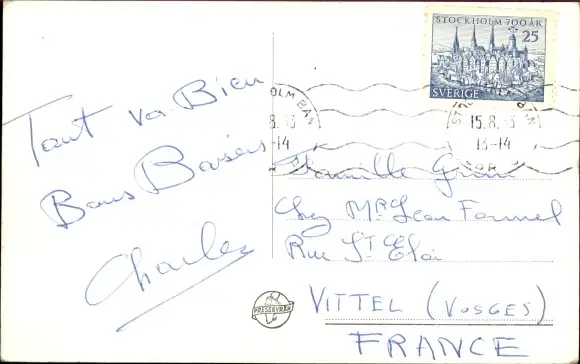 Tout va Bien
Bons Baisers
Charles
STOCKHOLM 700 ÅR
25
SVERIGE
HOLM BAN
8.53
-14
15.8.53
13-14
Famille
Chez Mr Jean
Rue St Eloi
VITTEL (VOSGES)
FRANCE
PRESSBYRÅN